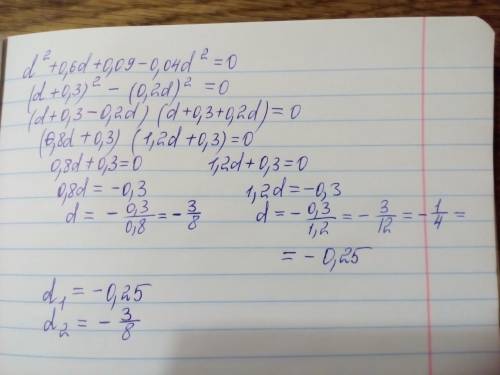 d² + 0,6d + 0,09 − 0,04d² = 0
(d + 0,3)² − (0,2d)² = 0
(d + 0,3 − 0,2d) (d + 0,3 + 0,2d) = 0
(0,8d + 0,3) (1,2d + 0,3) = 0
0,8d + 0,3 = 0 1,2d + 0,3 = 0
0,8d = −0,3 1,2d = −0,3
d = − 0,3/0,8 = − 3/8 d = − 0,3/1,2 = − 3/12 = − 1/4 =
= − 0,25
d₁ = −0,25
d₂ = − 3/8